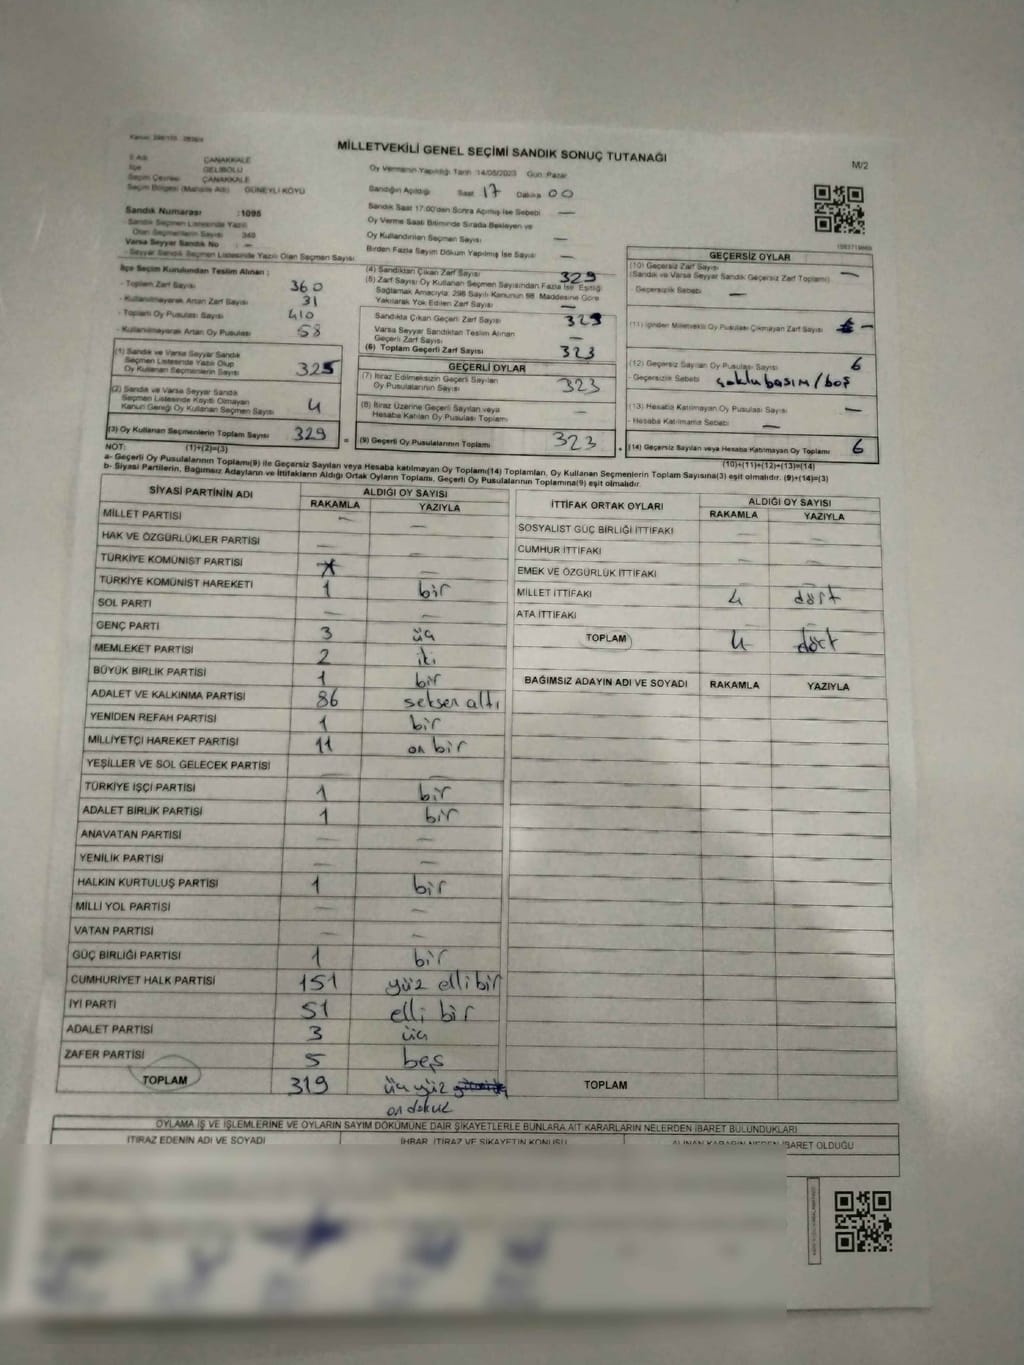 MİLLETVEKİLİ GENEL SEÇİMİ SANDIK SONUÇ TUTANAĞI
M/2
İli ÇANAKKALE
İlçe GELİBOLU
Seçim Çevresi ÇANAKKALE
Seçim Bölgesi (Mahalle Adı) GÜNEYLİ KÖYÜ
Sandık Numarası :1095
Sandık Seçmen Listesinde Yazılı
Olan Seçmenlerin Sayısı 349
Varsa Seyyar Sandık No : —
Seyyar Sandık Seçmen Listesinde Yazılı Olan Seçmen Sayısı
Oy Vermenin Yapıldığı Tarih 14/05/2023 Gün Pazar
Sandığın Açıldığı Saat 17 Dakika 00
Sandık Saat 17:00'den Sonra Açılmış İse Sebebi —
Oy Verme Saati Bitiminde Sırada Bekleyen ve
Oy Kullandırılan Seçmen Sayısı —
Birden Fazla Sayım Döküm Yapılmış İse Sayısı —
İlçe Seçim Kurulundan Teslim Alınan ;
- Toplam Zarf Sayısı 360
- Kullanılmayarak Artan Zarf Sayısı 31
- Toplam Oy Pusulası Sayısı 410
- Kullanılmayarak Artan Oy Pusulası 58
(1) Sandık ve Varsa Seyyar Sandık
Seçmen Listesinde Yazılı Olup
Oy Kullanan Seçmenlerin Sayısı 325
(2) Sandık ve Varsa Seyyar Sandık
Seçmen Listesinde Kayıtlı Olmayan
Kanun Gereği Oy Kullanan Seçmen Sayısı 4
(3) Oy Kullanan Seçmenlerin Toplam Sayısı 329
(1)+(2)=(3)
(4) Sandıktan Çıkan Zarf Sayısı 329
(5) Zarf Sayısı Oy Kullanan Seçmen Sayısından Fazla İse Eşitliği
Sağlamak Amacıyla, 298 Sayılı Kanunun 98. Maddesine Göre
Yakılarak Yok Edilen Zarf Sayısı —
Sandıkta Çıkan Geçerli Zarf Sayısı 329
Varsa Seyyar Sandıktan Teslim Alınan
Geçerli Zarf Sayısı —
(6) Toplam Geçerli Zarf Sayısı 323
GEÇERLİ OYLAR
(7) İtiraz Edilmeksizin Geçerli Sayılan
Oy Pusulalarının Sayısı 323
(8) İtiraz Üzerine Geçerli Sayılan veya
Hesaba Katılan Oy Pusulası Toplamı —
(9) Geçerli Oy Pusulalarının Toplamı 323
GEÇERSİZ OYLAR
(10) Geçersiz Zarf Sayısı —
(Sandık ve Varsa Seyyar Sandık Geçersiz Zarf Toplamı)
- Geçersizlik Sebebi —
(11) İçinden Milletvekili Oy Pusulası Çıkmayan Zarf Sayısı —
(12) Geçersiz Sayılan Oy Pusulası Sayısı 6
- Geçersizlik Sebebi çoklu basım/boş
(13) Hesaba Katılmayan Oy Pusulası Sayısı —
- Hesaba Katılmama Sebebi —
(14) Geçersiz Sayılan veya Hesaba Katılmayan Oy Toplamı 6
(10)+(11)+(12)+(13)=(14)
NOT:
a- Geçerli Oy Pusulalarının Toplamı(9) ile Geçersiz Sayılan veya Hesaba katılmayan Oy Toplamı(14) Toplamları, Oy Kullanan Seçmenlerin Toplam Sayısına(3) eşit olmalıdır. (9)+(14)=(3)
b- Siyasi Partilerin, Bağımsız Adayların ve İttifakların Aldığı Ortak Oyların Toplamı, Geçerli Oy Pusulalarının Toplamına(9) eşit olmalıdır.
SİYASİ PARTİNİN ADI ALDIĞI OY SAYISI
RAKAMLA YAZIYLA
MİLLET PARTİSİ — —
HAK VE ÖZGÜRLÜKLER PARTİSİ — —
TÜRKİYE KOMÜNİST PARTİSİ —
TÜRKİYE KOMÜNİST HAREKETİ 1 bir
SOL PARTİ — —
GENÇ PARTİ 3 üç
MEMLEKET PARTİSİ 2 iki
BÜYÜK BİRLİK PARTİSİ 1 bir
ADALET VE KALKINMA PARTİSİ 86 seksen altı
YENİDEN REFAH PARTİSİ 1 bir
MİLLİYETÇİ HAREKET PARTİSİ 11 on bir
YEŞİLLER VE SOL GELECEK PARTİSİ — —
TÜRKİYE İŞÇİ PARTİSİ 1 bir
ADALET BİRLİK PARTİSİ 1 bir
ANAVATAN PARTİSİ — —
YENİLİK PARTİSİ — —
HALKIN KURTULUŞ PARTİSİ 1 bir
MİLLİ YOL PARTİSİ — —
VATAN PARTİSİ — —
GÜÇ BİRLİĞİ PARTİSİ 1 bir
CUMHURİYET HALK PARTİSİ 151 yüz elli bir
İYİ PARTİ 51 elli bir
ADALET PARTİSİ 3 üç
ZAFER PARTİSİ 5 beş
TOPLAM 319 üç yüz
on dokuz
İTTİFAK ORTAK OYLARI ALDIĞI OY SAYISI
RAKAMLA YAZIYLA
SOSYALİST GÜÇ BİRLİĞİ İTTİFAKI — —
CUMHUR İTTİFAKI — —
EMEK VE ÖZGÜRLÜK İTTİFAKI — —
MİLLET İTTİFAKI 4 dört
ATA İTTİFAKI — —
TOPLAM 4 dört
BAĞIMSIZ ADAYIN ADI VE SOYADI RAKAMLA YAZIYLA
TOPLAM
OYLAMA İŞ VE İŞLEMLERİNE VE OYLARIN SAYIM DÖKÜMÜNE DAİR ŞİKAYETLERLE BUNLARA AİT KARARLARIN NELERDEN İBARET BULUNDUKLARI
İTİRAZ EDENİN ADI VE SOYADI İHBAR, İTİRAZ VE ŞİKAYETİN KONUSU ALINAN KARARIN NEDEN İBARET OLDUĞU